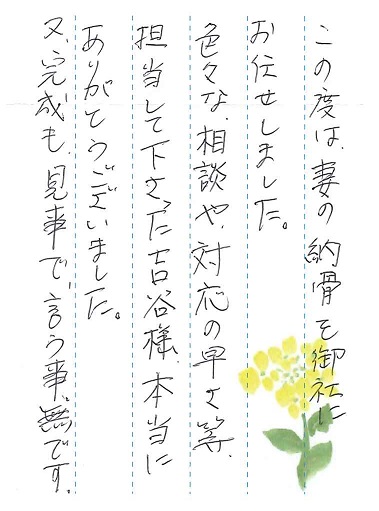 この度は、妻の納骨を御社に
お任せしました。
色々な、相談や、対応の早さ等、
担当して下さった古谷様、本当に
ありがとうございました。
又、完成も、見事で、言う事無です。